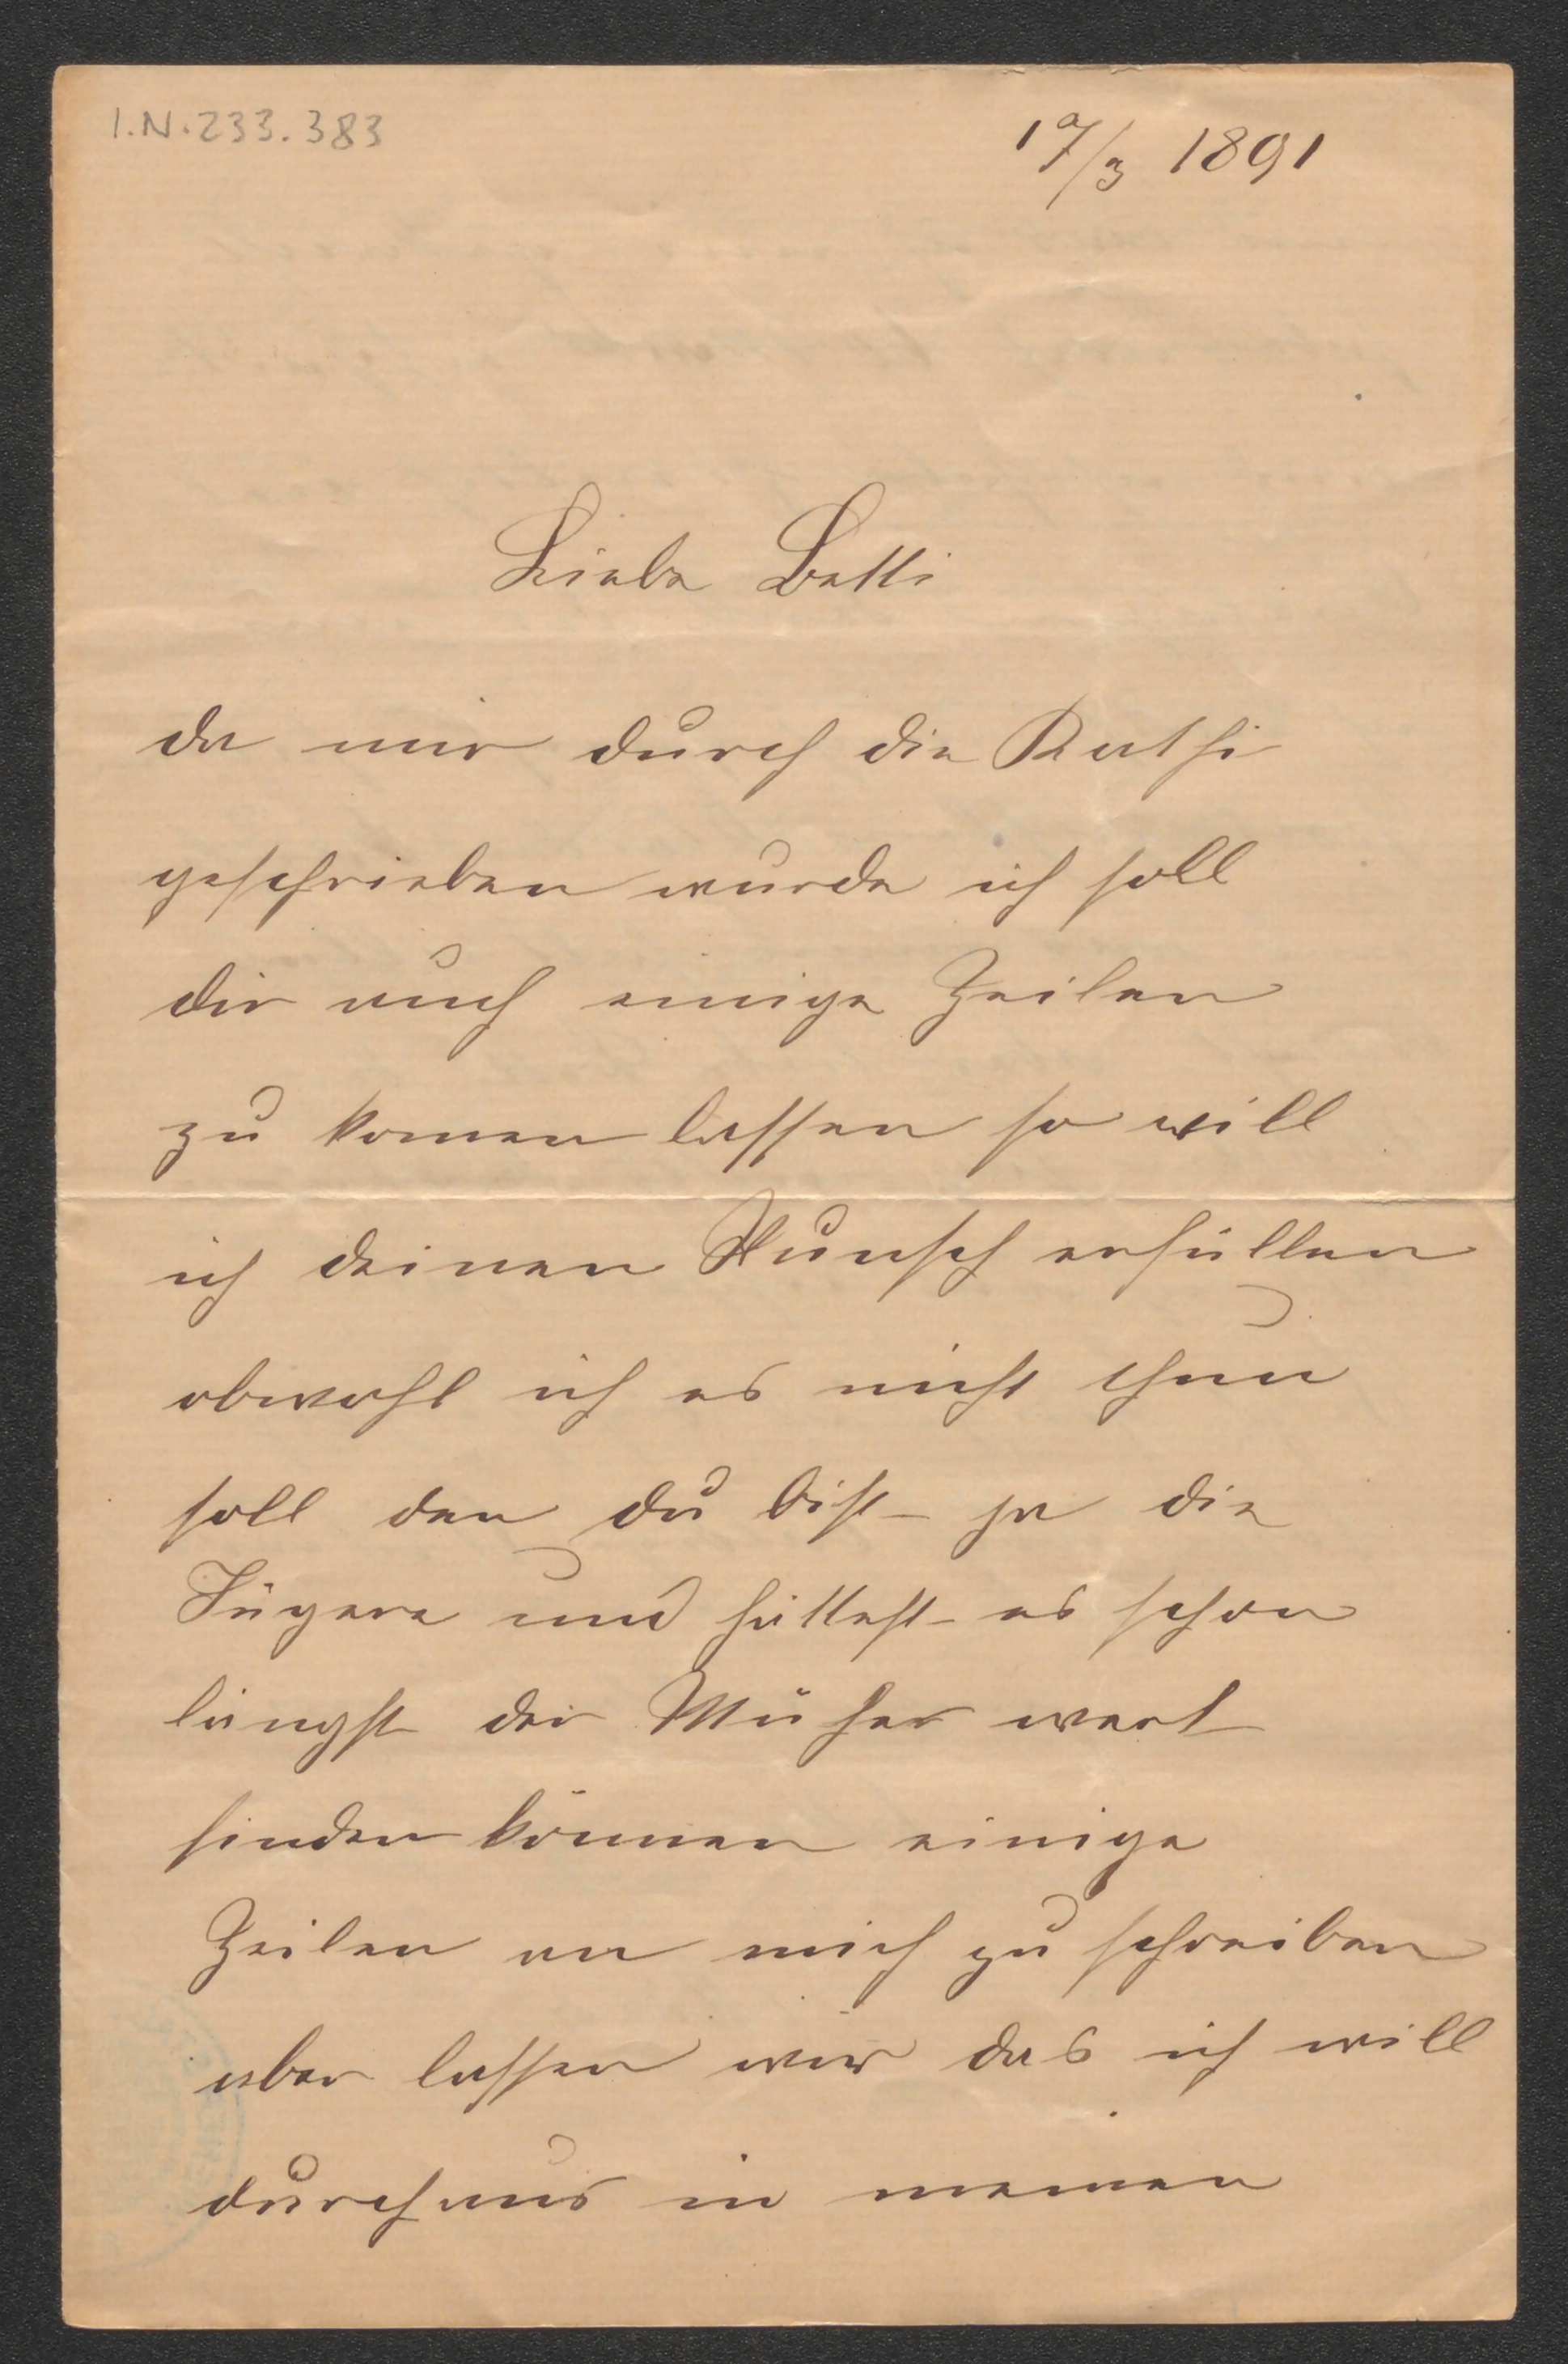 I.N. 233.383
17/3 1891
Liebe Betti
da mir durch die Kathi
geschrieben wurde ich soll
dir auch einige Zeilen
zu komen lassen so will
ich deinen Wunsch erfüllen
obwohl ich es nicht thun
soll den du bist ja die
Jügere und hättest es schon
längst der Mühe wert
finden können einige
Zeilen an mich zu schreiben
aber lassen wir das ich will
durchaus in meinen